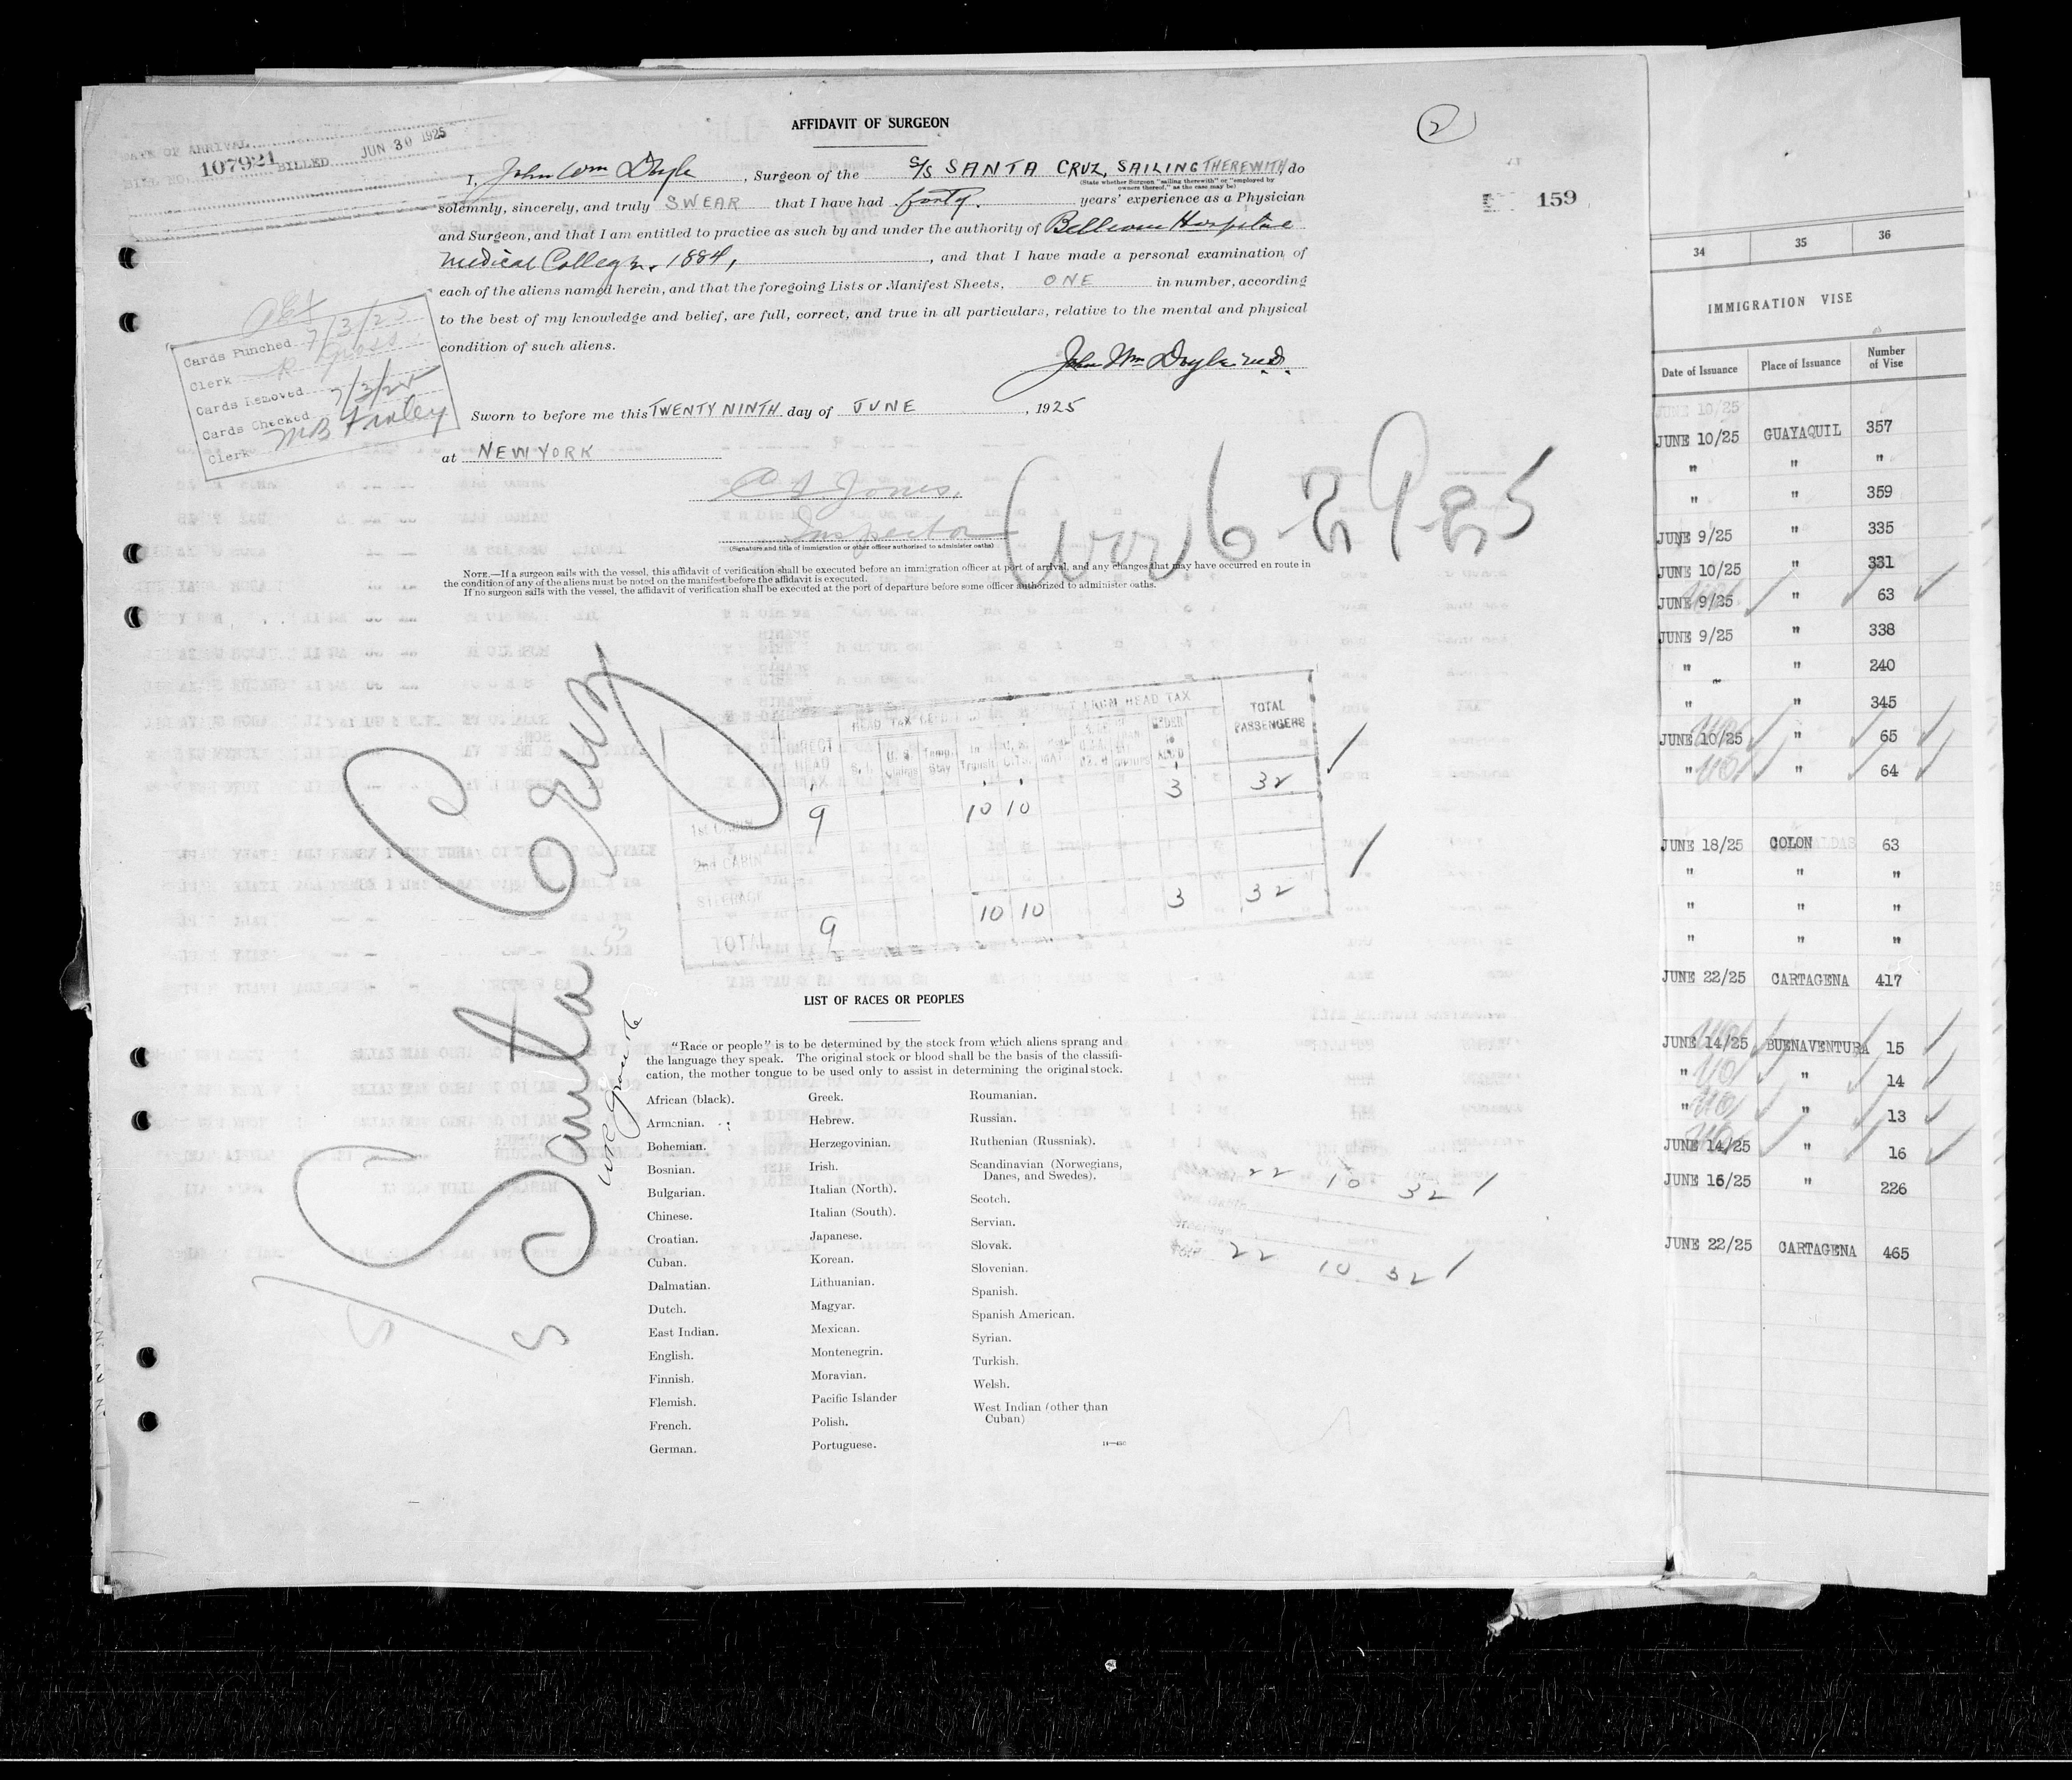 AFFIDAVIT OF SURGEON
2
DATE OF ARRIVAL
BILL NO. 107921 BILLED JUN 30 1925
I, John Wm Doyle, Surgeon of the S/S SANTA CRUZ, SAILING THEREWITH, do
(State whether Surgeon "sailing therewith" or "employed by
owners thereof," as the case may be)
solemnly, sincerely, and truly SWEAR that I have had forty. years' experience as a Physician
159
and Surgeon, and that I am entitled to practice as such by and under the authority of Bellevue Hospital
Medical College. 1884, , and that I have made a personal examination of
each of the aliens named herein, and that the foregoing Lists or Manifest Sheets, ONE in number, according
to the best of my knowledge and belief, are full, correct, and true in all particulars, relative to the mental and physical
condition of such aliens.
John Wm Doyle M.D.
Cards Punched 7/3/25
Clerk R Gross
Cards Removed
Cards Checked 7/3/25
Clerk MB Finley
Sworn to before me this TWENTY NINTH day of JUNE , 1925
at NEW YORK
Jones,
Inspector
(Signature and title of immigration or other officer authorized to administer oaths)
6-29-25
NOTE.—If a surgeon sails with the vessel, this affidavit of verification shall be executed before an immigration officer at port of arrival, and any changes that may have occurred en route in
the condition of any of the aliens must be noted on the manifest before the affidavit is executed.
If no surgeon sails with the vessel, the affidavit of verification shall be executed at the port of departure before some officer authorized to administer oaths.
S/S Santa Cruz
HEAD TAX
FROM HEAD TAX
TOTAL PASSENGERS
1st CABIN 9 10 10 3 32
2nd CABIN
STEERAGE
TOTAL 9 10 10 3 32
LIST OF RACES OR PEOPLES
"Race or people" is to be determined by the stock from which aliens sprang and
the language they speak. The original stock or blood shall be the basis of the classifi-
cation, the mother tongue to be used only to assist in determining the original stock.
African (black).
Armenian.
Bohemian.
Bosnian.
Bulgarian.
Chinese.
Croatian.
Cuban.
Dalmatian.
Dutch.
East Indian.
English.
Finnish.
Flemish.
French.
German.
Greek.
Hebrew.
Herzegovinian.
Irish.
Italian (North).
Italian (South).
Japanese.
Korean.
Lithuanian.
Magyar.
Mexican.
Montenegrin.
Moravian.
Pacific Islander
Polish.
Portuguese.
Roumanian.
Russian.
Ruthenian (Russniak).
Scandinavian (Norwegians,
Danes, and Swedes).
Scotch.
Servian.
Slovak.
Slovenian.
Spanish.
Spanish American.
Syrian.
Turkish.
Welsh.
West Indian (other than
Cuban)
22 10 32
22 10 32
34 35 36
IMMIGRATION VISE
Date of Issuance Place of Issuance Number of Vise
JUNE 10/25
JUNE 10/25 GUAYAQUIL 357
" " "
" " 359
JUNE 9/25 " 335
JUNE 10/25 " 331
JUNE 9/25 " 63
JUNE 9/25 " 338
" " 240
" " 345
JUNE 10/25 " 65
" " 64
JUNE 18/25 COLON 63
" " "
" " "
" " "
JUNE 22/25 CARTAGENA 417
JUNE 14/25 BUENAVENTURA 15
" " 14
" " 13
JUNE 14/25 " 16
JUNE 16/25 " 226
JUNE 22/25 CARTAGENA 465